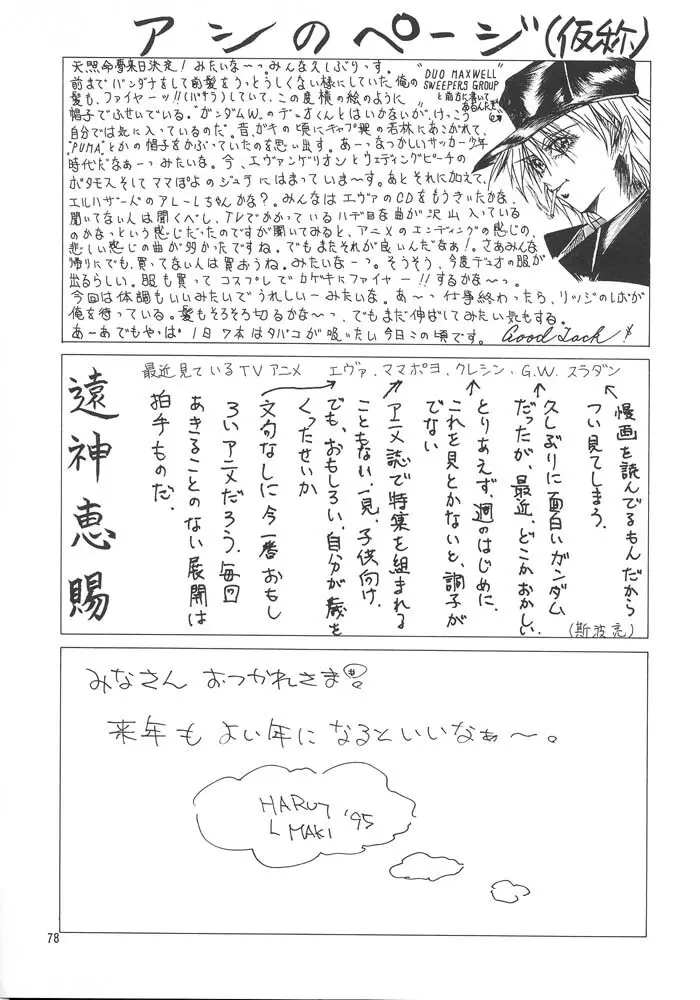 アシのページ(仮称)
天照命夢来日決定!みたいな〜っ。みんな久しぶりっす。
前までバンダナをして前髪をうっとうしくない様にしていた俺の
髪も、ファイヤーッ!!(バサラ)していて、この度横の絵のように
帽子でふせいでいる。"ガンダムW"のデュオくんとはいかないが、けっこう
自分では気に入っているのだ。昔、ガキの頃にキャプ翼の若林にあこがれて、
"PUMA"とかの帽子をかぶっていたのを思い出す。あーなつかしいサッカー少年
時代だなぁーっみたいな。今、エヴァンゲリオンとウェディングピーチの
ポタモスそしてママぽよのジュテにはまっていま〜す。あとそれに加えて、
エルハザードのアレーレちゃんかな?。みんなはエヴァのCDをもうきいたかな、
聞いてない人は聞くべし、TVでかかっているハデ目な曲が沢山入っている
のかなっという感じだったのですが聞いてみると、アニメのエンディングの感じの、
悲しい感じの曲が多かったですね。でもまたそれが良いんだなぁ!。さあみんな
帰りにでも、買ってない人は買おうね。みたいなーっ。そうそう、今度デュオの服が
出るらしい。服も買って コスプレでカゲキにファイヤー!!するかな〜っ。
今回は体調もいいみたいでうれしいーみたいな。あ〜っ仕事終わったら、リッジのレボが
俺を待っている。髪もそろそろ切るかな〜っ、でもまだ伸ばしてみたい気もする。
あーあでもやっぱ 1日7本はタバコが吸いたい今日この頃です。 Good Luck!
"DUO MAXWELL"
SWEEPERS GROUP
と前方に書いて
あるんだぜ
最近見ているTVアニメ エヴァ、ママポヨ、クレシン、G.W. スラダン
漫画を読んでるもんだから
つい見てしまう。
久しぶりに面白いガンダム
だったが、最近、どこかおかしい
とりあえず、週のはじめに、
これを見とかないと、調子が
でない
アニメ誌で特集を組まれる
こともない、一見、子供向け、
でも、おもしろい、自分が歳を
くったせいか
文句なしに今一番おもし
ろいアニメだろう、毎回
あきることのない展開は
拍手ものだ。
遠神恵賜
(斯波亮)
みなさん おつかれさま!
来年も よい年に なるといいなぁ〜。
MAKI '95
78